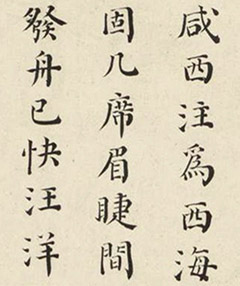 咸西注爲西海
固几席眉睫間
發舟已快汪洋